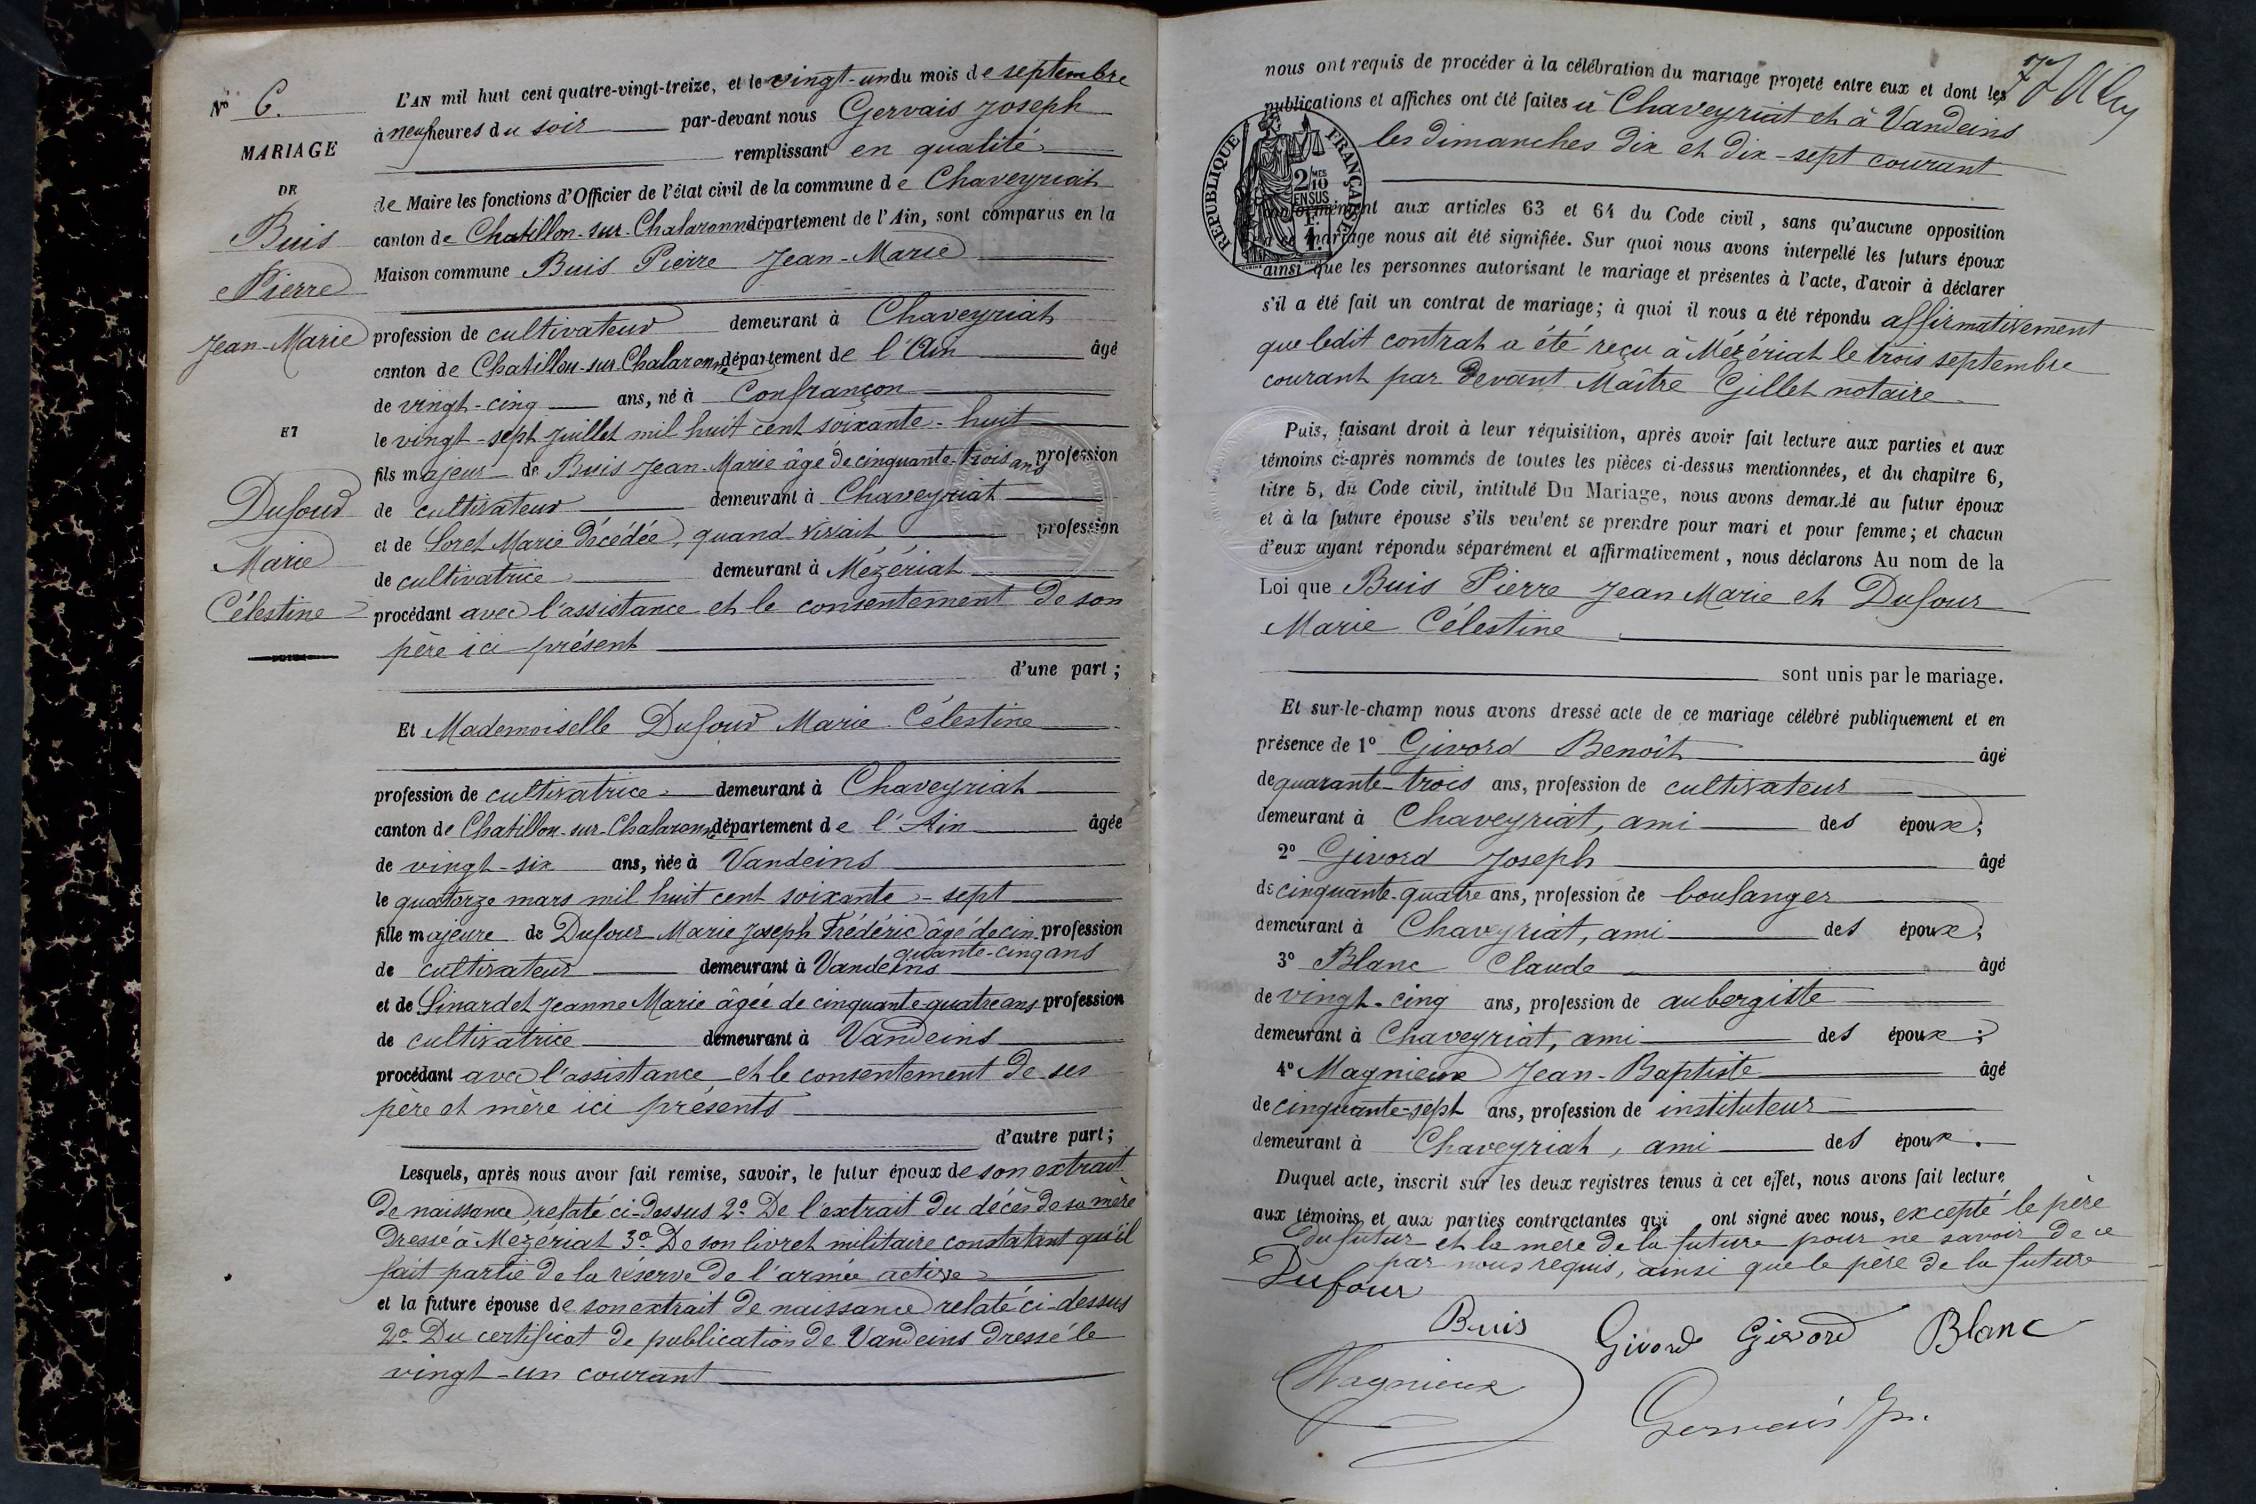 N° 6.
MARIAGE
DE
Buis
Pierre
Jean-Marie
ET
Dufour
Marie
Célestine
L'AN mil huit cent quatre-vingt-treize, et le vingt-un du mois de septembre
à neuf heures du soir par-devant nous Gervais Joseph
remplissant en qualité
de Maire les fonctions d'Officier de l'état civil de la commune de Chaveyriat
canton de Chatillon-sur-Chalaronne département de l'Ain, sont comparus en la
Maison commune Buis Pierre Jean-Marie
profession de cultivateur demeurant à Chaveyriat
canton de Chatillon-sur-Chalaronne département de l'Ain âgé
de vingt-cinq ans, né à Confrançon
le vingt-sept juillet mil huit cent soixante-huit
fils majeur de Buis Jean-Marie âgé de cinquante-trois ans profession
de cultivateur demeurant à Chaveyriat
et de Loret Marie décédée, quand vivait profession
de cultivatrice demeurant à Mézériat
procédant avec l'assistance et le consentement de son
père ici présent
d'une part;
Et Mademoiselle Dufour Marie Célestine
profession de cultivatrice demeurant à Chaveyriat
canton de Chatillon-sur-Chalaronne département de l'Ain âgée
de vingt-six ans, née à Vandeins
le quatorze mars mil huit cent soixante-sept
fille majeure de Dufour Marie Joseph Frédéric âgé de cin profession
quante-cinq ans
de cultivateur demeurant à Vandeins
et de Linardet Jeanne Marie âgée de cinquante-quatre ans profession
de cultivatrice demeurant à Vandeins
procédant avec l'assistance et le consentement de ses
père et mère ici présents
d'autre part;
Lesquels, après nous avoir fait remise, savoir, le futur époux de son extrait
de naissance relaté ci-dessus 2° De l'extrait du décès de sa mère
dressé à Mézériat 3° De son livret militaire constatant qu'il
fait partie de la réserve de l'armée active
et la future épouse de son extrait de naissance relaté ci-dessus
2° Du certificat de publication de Vandeins dressé le
vingt-un courant
nous ont requis de procéder à la célébration du mariage projeté entre eux et dont les
publications et affiches ont été faites à Chaveyriat et à Vandeins
les dimanches dix et dix-sept courant
RÉPUBLIQUE FRANÇAISE
2/10 MES
EN SUS
conformément aux articles 63 et 64 du Code civil, sans qu'aucune opposition
à ce mariage nous ait été signifiée. Sur quoi nous avons interpellé les futurs époux
ainsi que les personnes autorisant le mariage et présentes à l'acte, d'avoir à déclarer
s'il a été fait un contrat de mariage; à quoi il nous a été répondu affirmativement
que ledit contrat a été reçu à Mézériat le trois septembre
courant par devant Maître Gillet notaire.
Puis, faisant droit à leur réquisition, après avoir fait lecture aux parties et aux
témoins ci-après nommés de toutes les pièces ci-dessus mentionnées, et du chapitre 6,
titre 5, du Code civil, intitulé Du Mariage, nous avons demandé au futur époux
et à la future épouse s'ils veulent se prendre pour mari et pour femme; et chacun
d'eux ayant répondu séparément et affirmativement, nous déclarons Au nom de la
Loi que Buis Pierre Jean Marie et Dufour
Marie Célestine
sont unis par le mariage.
Et sur-le-champ nous avons dressé acte de ce mariage célébré publiquement et en
présence de 1° Givord Benoît âgé
de quarante-trois ans, profession de cultivateur
demeurant à Chaveyriat, ami des époux;
2° Givord Joseph âgé
de cinquante-quatre ans, profession de boulanger
demeurant à Chaveyriat, ami des époux;
3° Blanc Claude âgé
de vingt-cinq ans, profession de aubergiste
demeurant à Chaveyriat, ami des époux;
4° Magnieux Jean-Baptiste âgé
de cinquante-sept ans, profession de instituteur
demeurant à Chaveyriat, ami des époux.
Duquel acte, inscrit sur les deux registres tenus à cet effet, nous avons fait lecture
aux témoins et aux parties contractantes qui ont signé avec nous, excepté le père
du futur et la mère de la future pour ne savoir de ce
par nous requis, ainsi que le père de la future
Dufour
Buis Givord Givord Blanc
Magnieux
Gervais Jh.